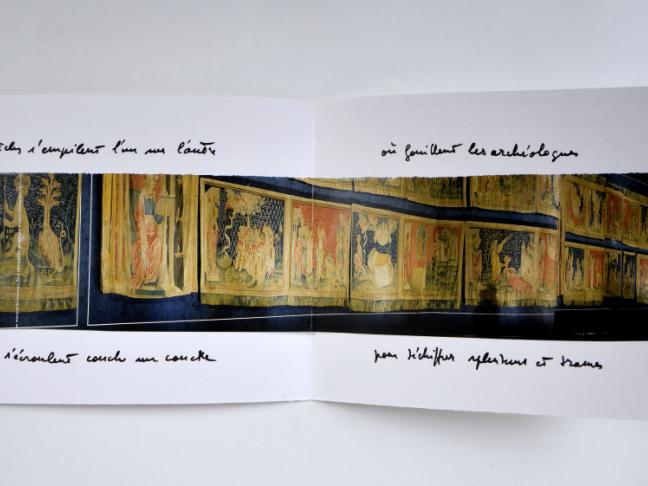 s'empilent l'un sur l'autre
où fouillent les archéologues
s'écroulent couche sur couche
pour déchiffrer et trames